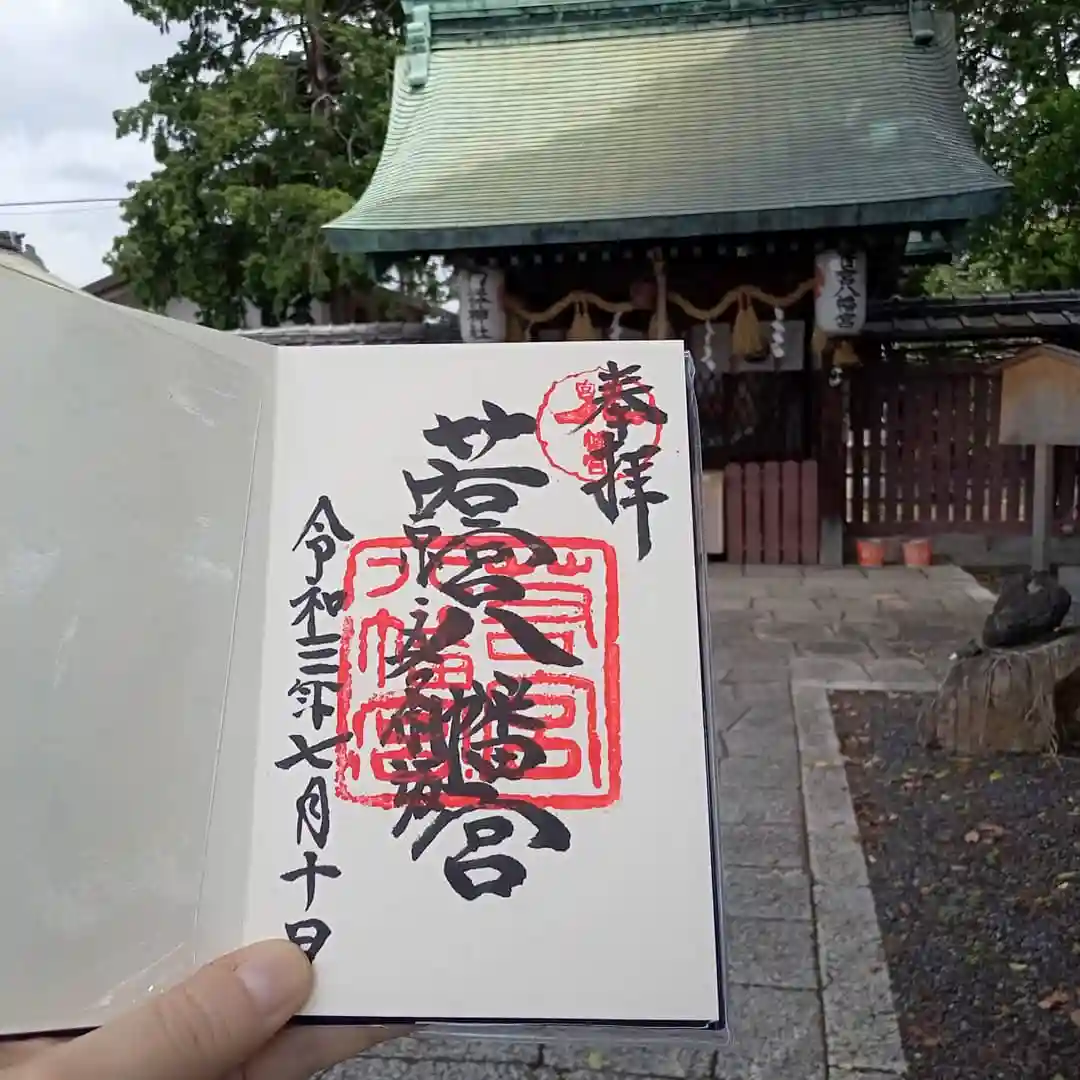 奉拝
若宮八幡宮
令和三年七月十日
若宮八幡宮
八幡宮
神社